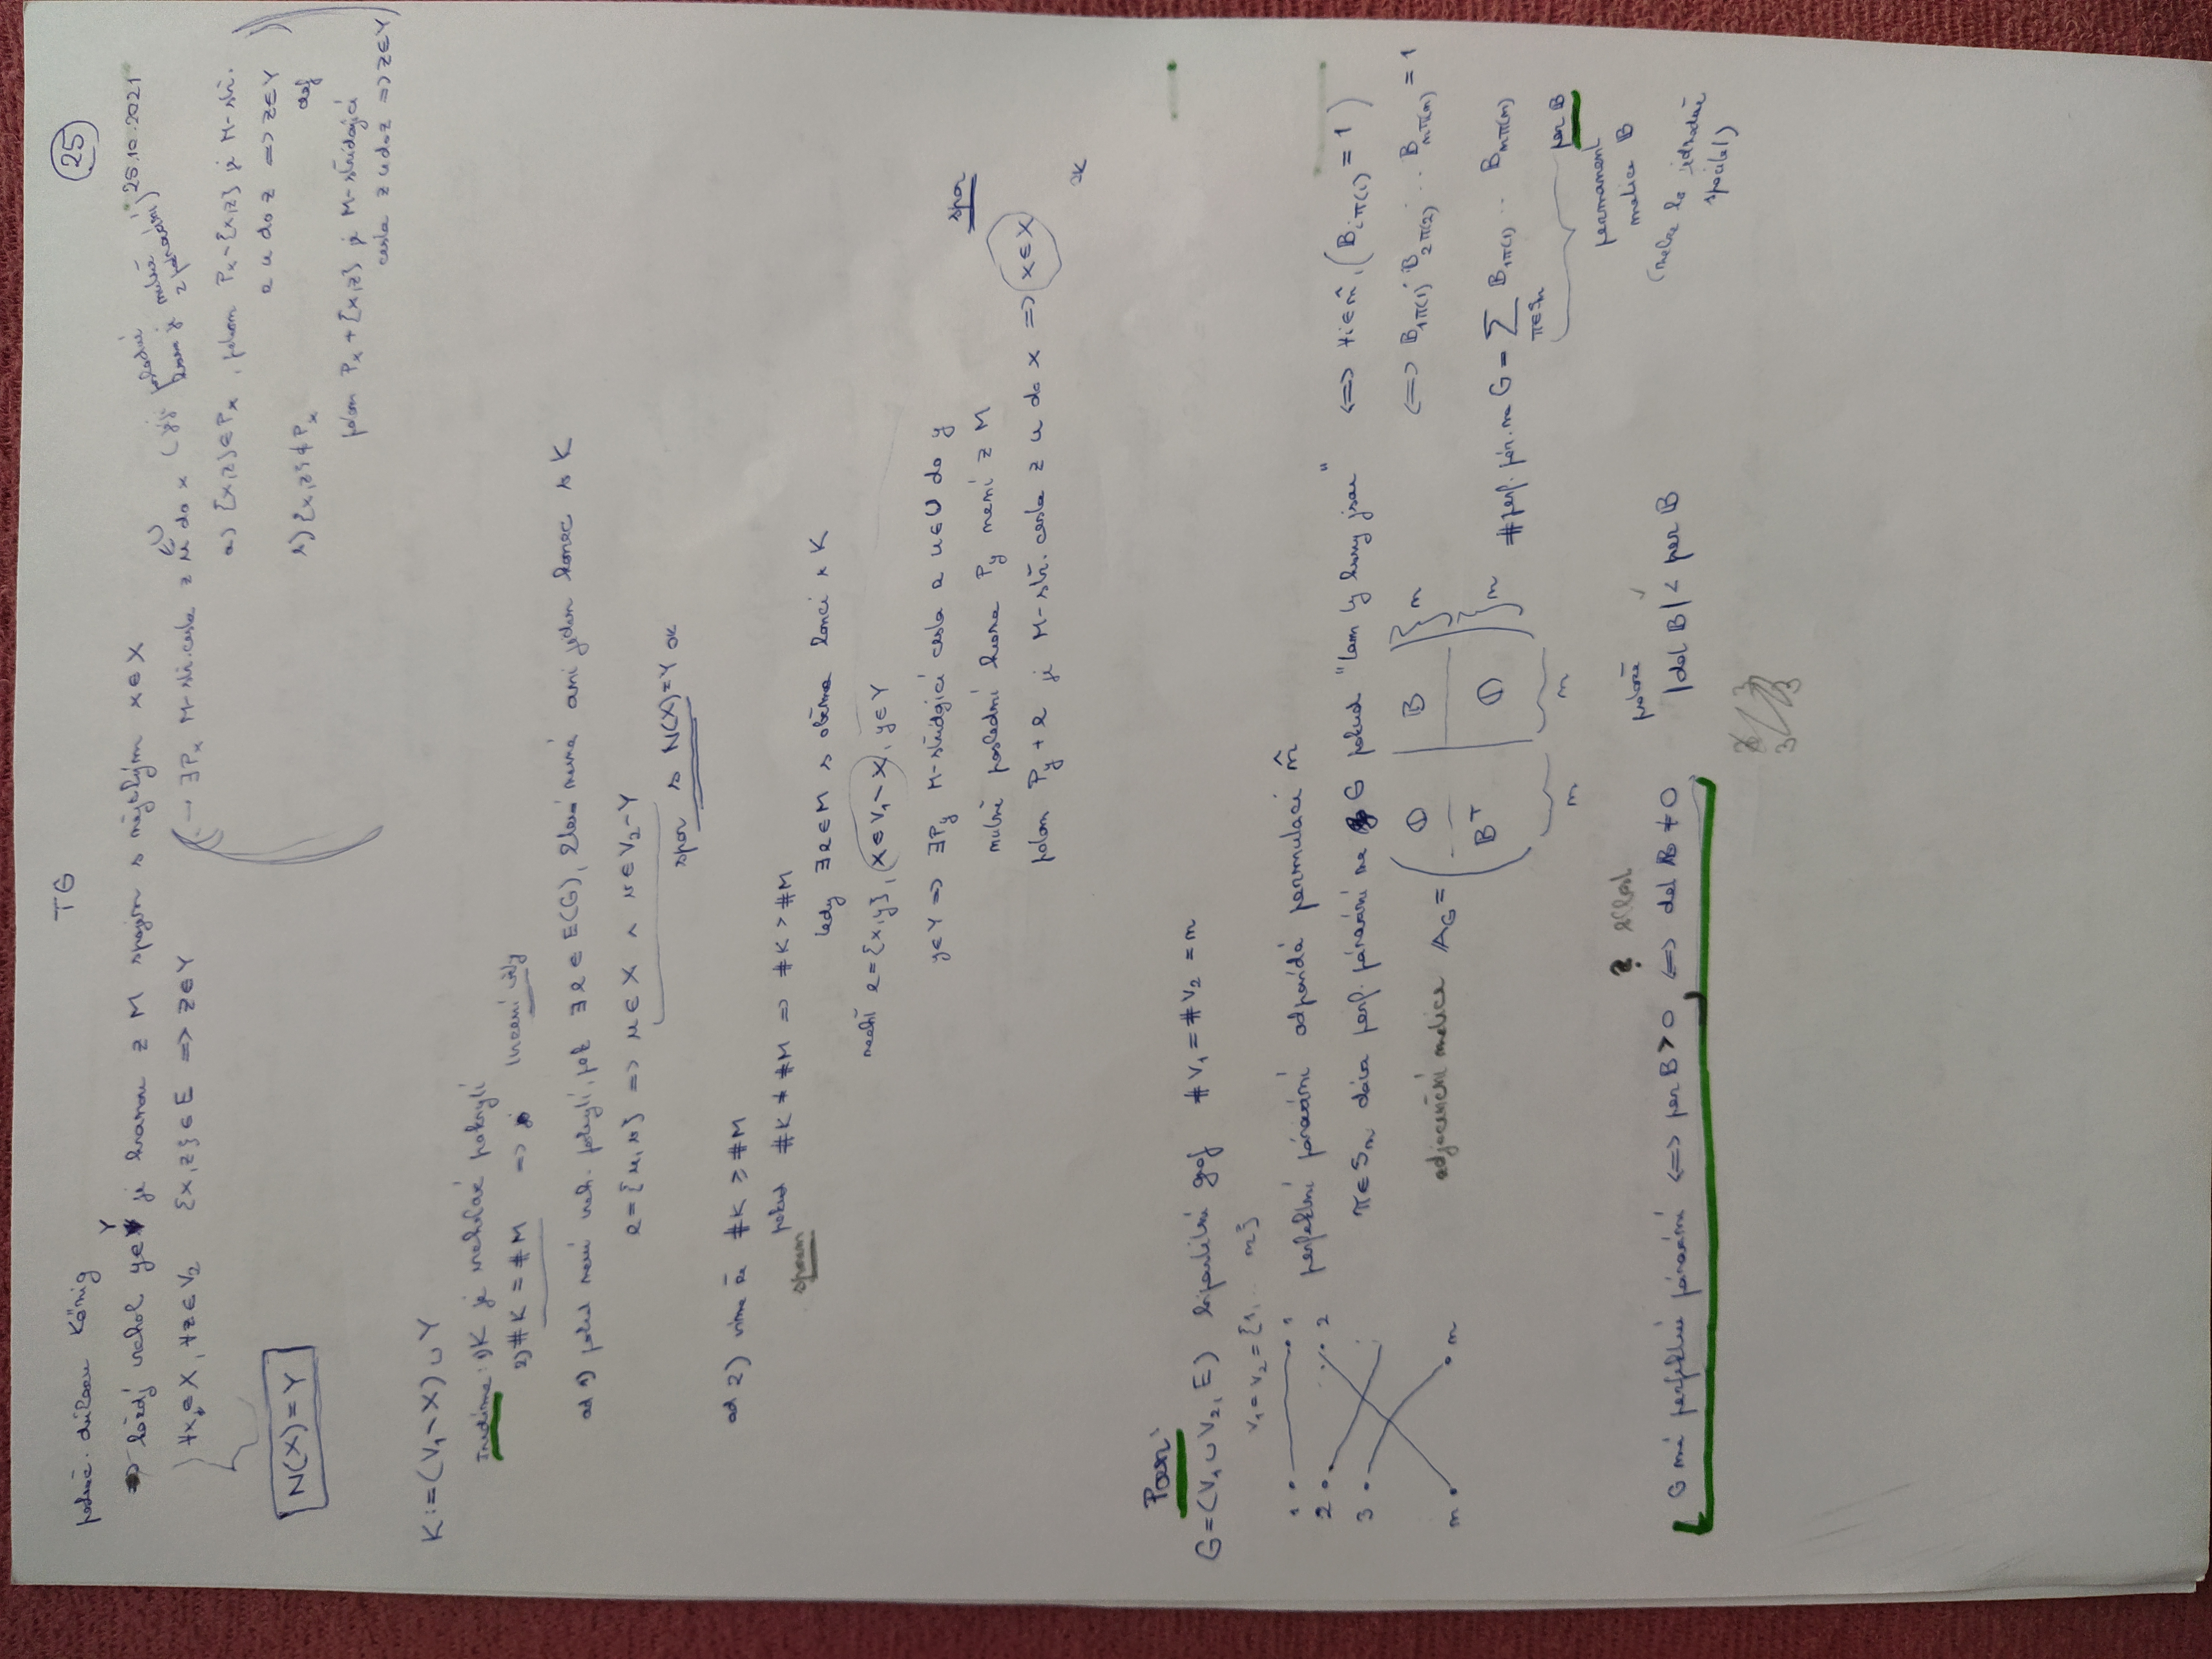 TG
25
25.10.2021
pokrač. důkazu König
=> každý vrchol y∈Y je hranou z M spojen s nějakým x∈X
∀x∈X, ∀z∈V₂ {x,z}∈E => z∈Y
N(X)=Y
→ ∃Pₓ M-stř. cesta z u do x (její poslední hrana je nutně z párování)
∈U
a) {x,z}∈Pₓ, potom Pₓ∖{x,z} je M-stř.
z u do z => z∈Y
b) {x,z}∉Pₓ def
potom Pₓ+{x,z} je M-střídající
cesta z u do z => z∈Y
K:=(V₁∖X)∪Y
1) K je vrcholové pokrytí
2) #K=#M =>
ad 1) pokud není vrch. pokrytí, pak ∃e∈E(G), která nemá ani jeden konec v K
e={u,v} => u∈X ∧ v∈V₂∖Y
spor s N(X)=Y OK
ad 2) víme že #K≥#M
sporem pokud #K≠#M => #K>#M
tedy ∃e∈M s oběma konci v K
nechť e={x,y}, x∈V₁∖X, y∈Y
y∈Y => ∃P_y M-střídající cesta z u∈U do y
nutně poslední hrana P_y není z M
potom P_y+e je M-stř. cesta z u do x => x∈X spor
OK
Pozn:
G=(V₁∪V₂,E) bipartitní graf #V₁=#V₂=n
V₁=V₂={1,... n}
1 1
2 2
3
n n
perfektní párování odpovídá permutaci n̂
π∈Sₙ dává perf. párování na G pokud "tam ty hrany jsou" <=> ∀i∈n̂, (B_{iπ(i)}=1)
<=> B_{1π(1)}·B_{2π(2)}·...·B_{nπ(n)}=1
adjacenční matice A_G = ( 0 | B / Bᵀ | 0 ) }n }n
n n
#perf. pár. na G = ∑_{π∈Sₙ} B_{1π(1)}...B_{nπ(n)}
per B
permanent
matice B
(nelze to jednoduše
spočítat)
?
protože
G má perfektní párování <=> per B>0, <=> det B≠0 |det B|< per B